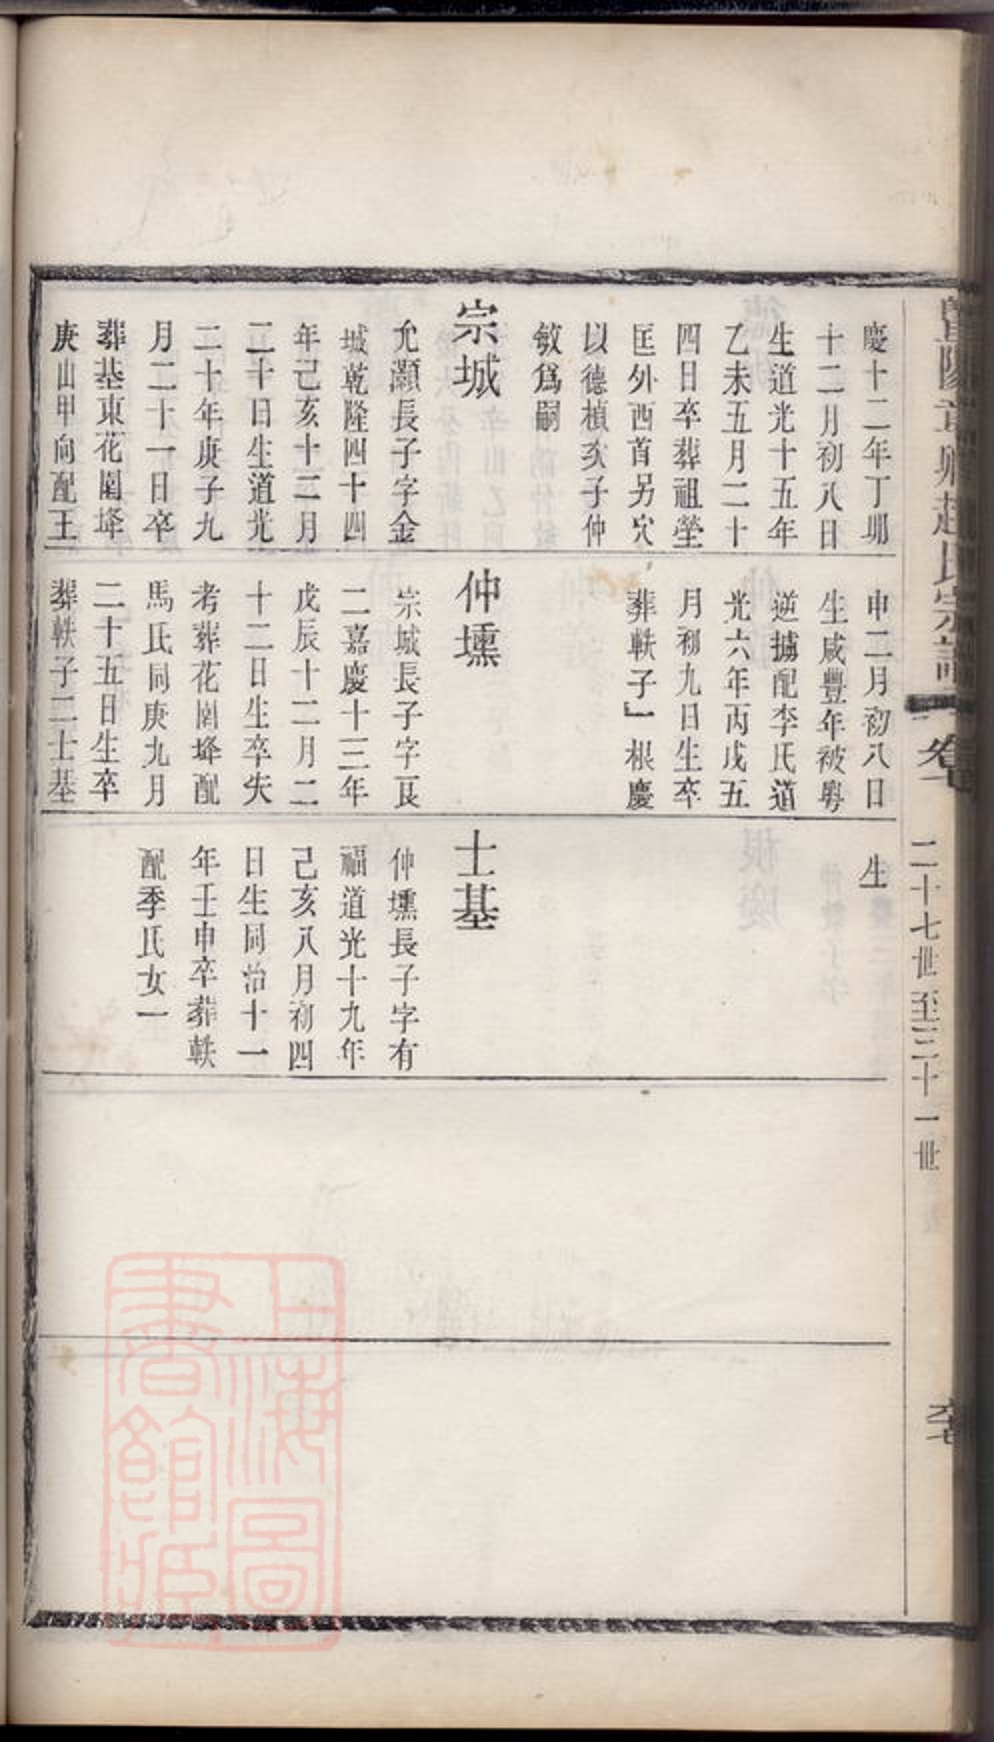 慶十二年丁卯
十二月初八日
生道光十五年
乙未五月二十
四日卒葬祖塋
匡外酉首另穴
以德楨次子仲
敏爲嗣
宗城
允灝長子字金
城乾隆四十四
年己亥十二月
二十日生道光
二十年庚子九
月二十一日卒
葬基東花園埄
庚山甲向配王
申二月初八日
生咸豐年被粤
逆擄配李氏道
光六年丙戌五
月初九日生卒
葬軼子一根慶
仲壎
宗城長子字艮
二嘉慶十三年
戊辰十二月二
十二日生卒失
考葬花園埄配
馬氏同庚九月
二十五日生卒
葬軼子二士基
生
士基
仲壎長子字有
福道光十九年
己亥八月初四
日生同治十一
年壬申卒葬軼
配季氏女一
趙氏宗譜
卷七
二十七世至三十一世
上海圖書館藏